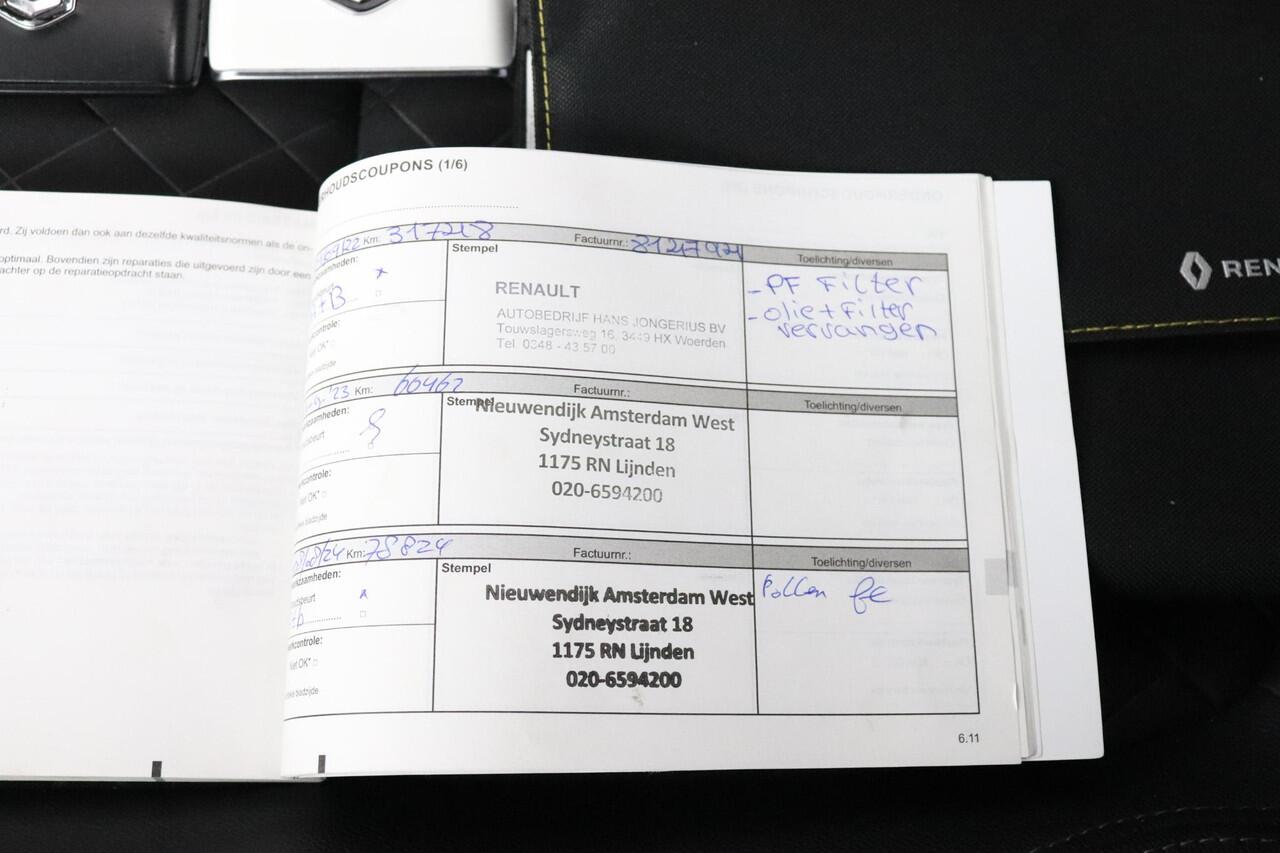 rd. Zij voldoen dan ook aan dezelfde kwaliteitsnormen als de on-
optimaal. Bovendien zijn reparaties die uitgevoerd zijn door een
achter op de reparatieopdracht staan.
RHOUDSCOUPONS (1/6)
/22 Km: 317218 Factuurnr.: 8124794
kzaamheden:
Stempel
Toelichting/diversen
RENAULT
AUTOBEDRIJF HANS JONGERIUS BV
Touwslagersweg 16, 3449 HX Woerden
Tel. 0348 - 43 57 00
- PF Filter
- olie + Filter
vervangen
controle:
OK*
bladzijde
'23 Km: 60462 Factuurnr.:
kzaamheden:
dsbeurt
Stempel
Toelichting/diversen
Nieuwendijk Amsterdam West
Sydneystraat 18
1175 RN Lijnden
020-6594200
rkcontrole:
Niet OK*
bladzijde
/08/24 Km: 78824 Factuurnr.:
kzaamheden:
dsbeurt
Stempel
Toelichting/diversen
Nieuwendijk Amsterdam West
Sydneystraat 18
1175 RN Lijnden
020-6594200
Pollen
rkcontrole:
Niet OK*
bladzijde
6.11
REN